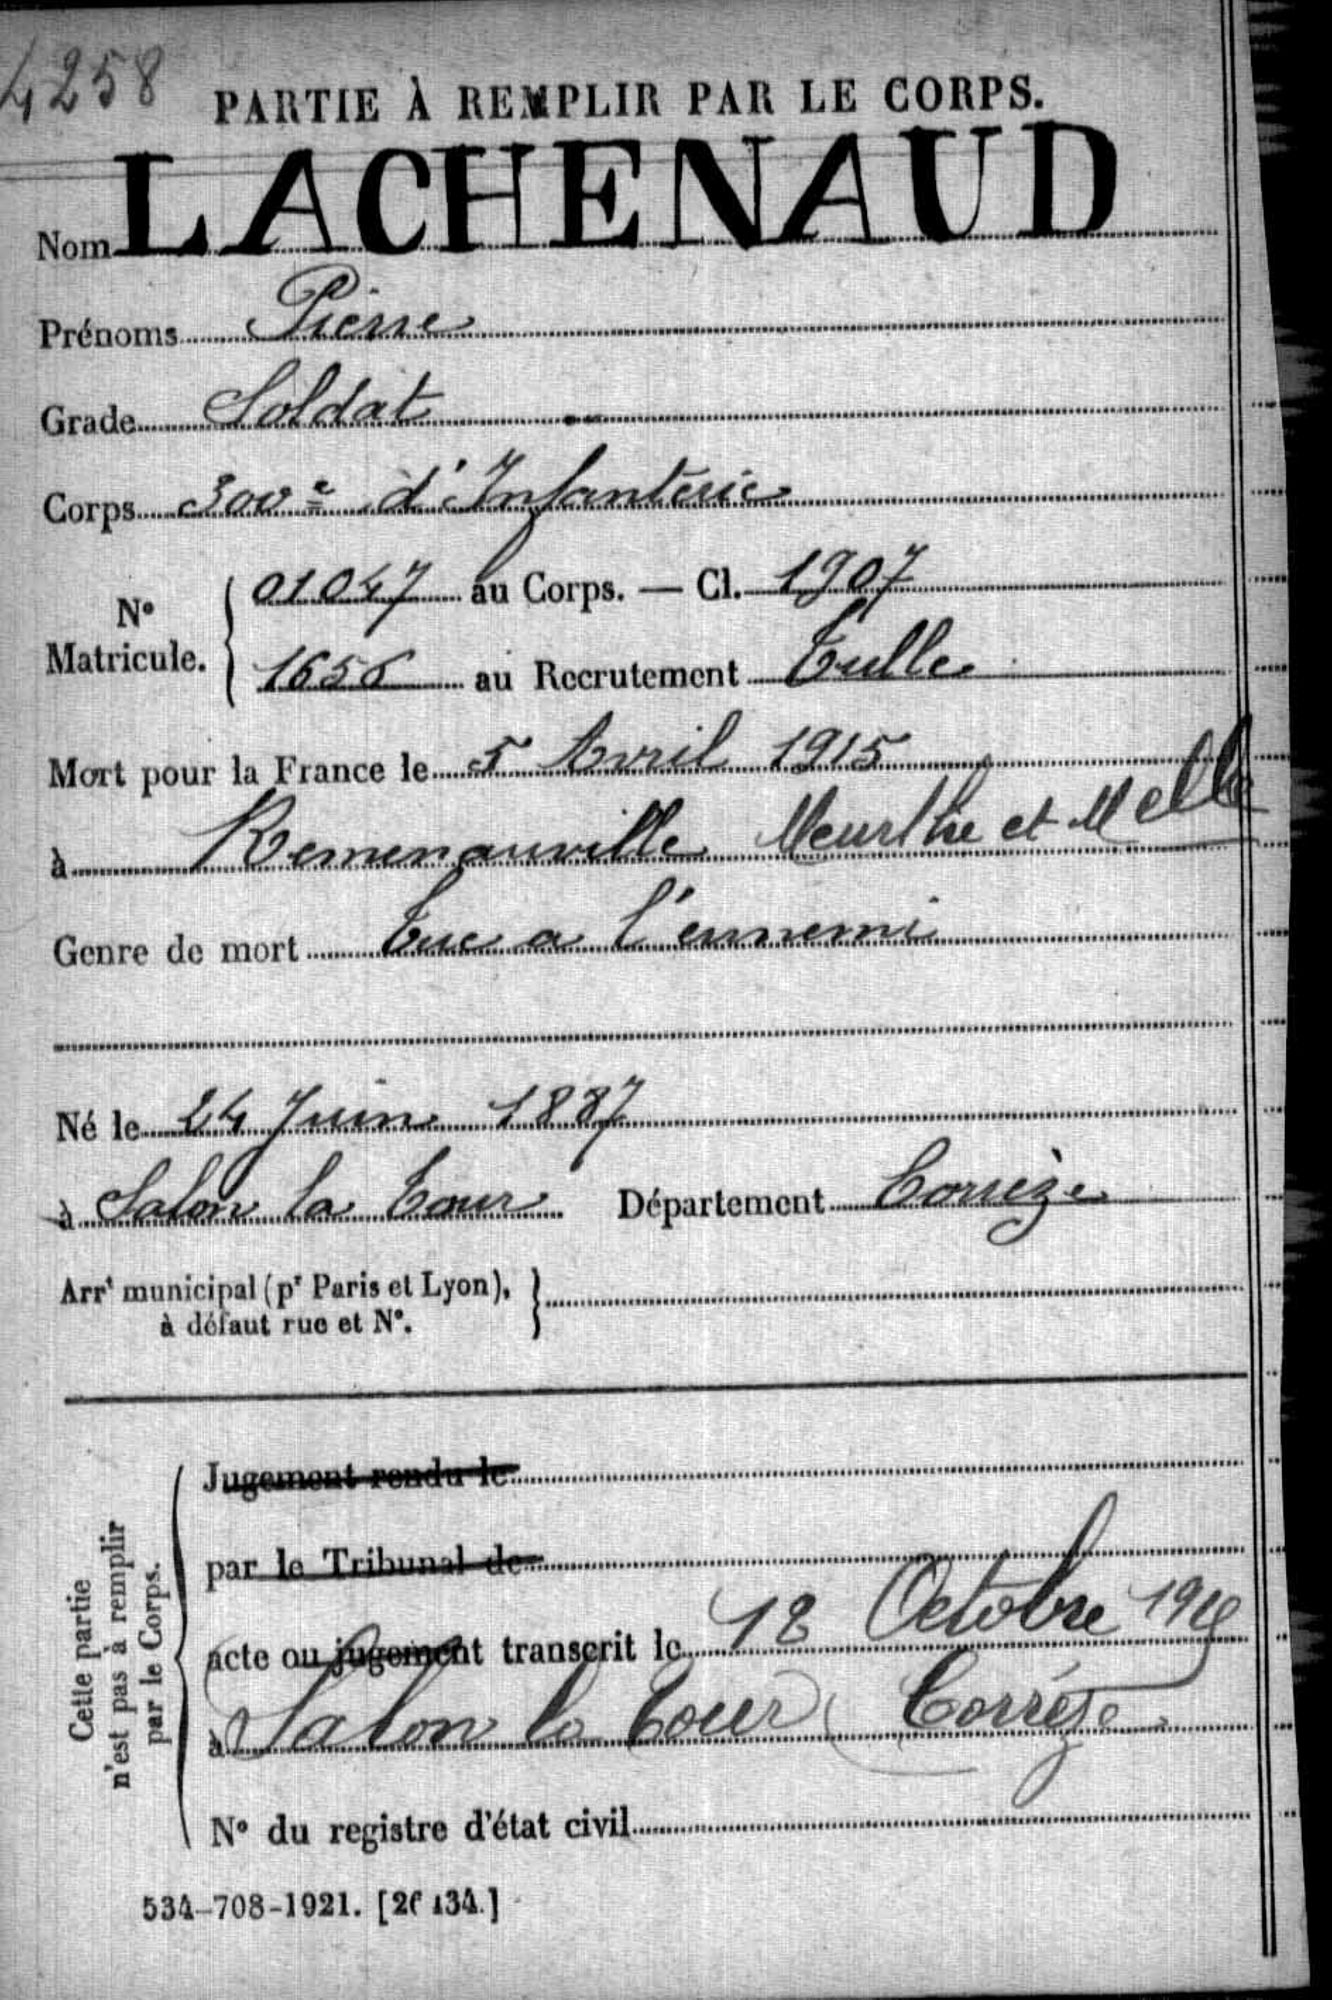 4258
PARTIE À REMPLIR PAR LE CORPS.
Nom LACHENAUD
Prénoms Pierre
Grade Soldat
Corps 300e d'Infanterie
N° Matricule. { 01047 au Corps. — Cl. 1907
1656 au Recrutement Tulle
Mort pour la France le 5 Avril 1915
à Remenauville Meurthe et Melle
Genre de mort Tué a l'ennemi
Né le 24 Juin 1887
à Salon la Tour Département Corrèze
Arrt municipal (pr Paris et Lyon), }
à défaut rue et N°.
Cette partie
n'est pas à remplir
par le Corps.
Jugement rendu le
par le Tribunal de
acte ou jugement transcrit le 18 Octobre
à Salon la Tour Corrèze
N° du registre d'état civil
534-708-1921. [26434.]